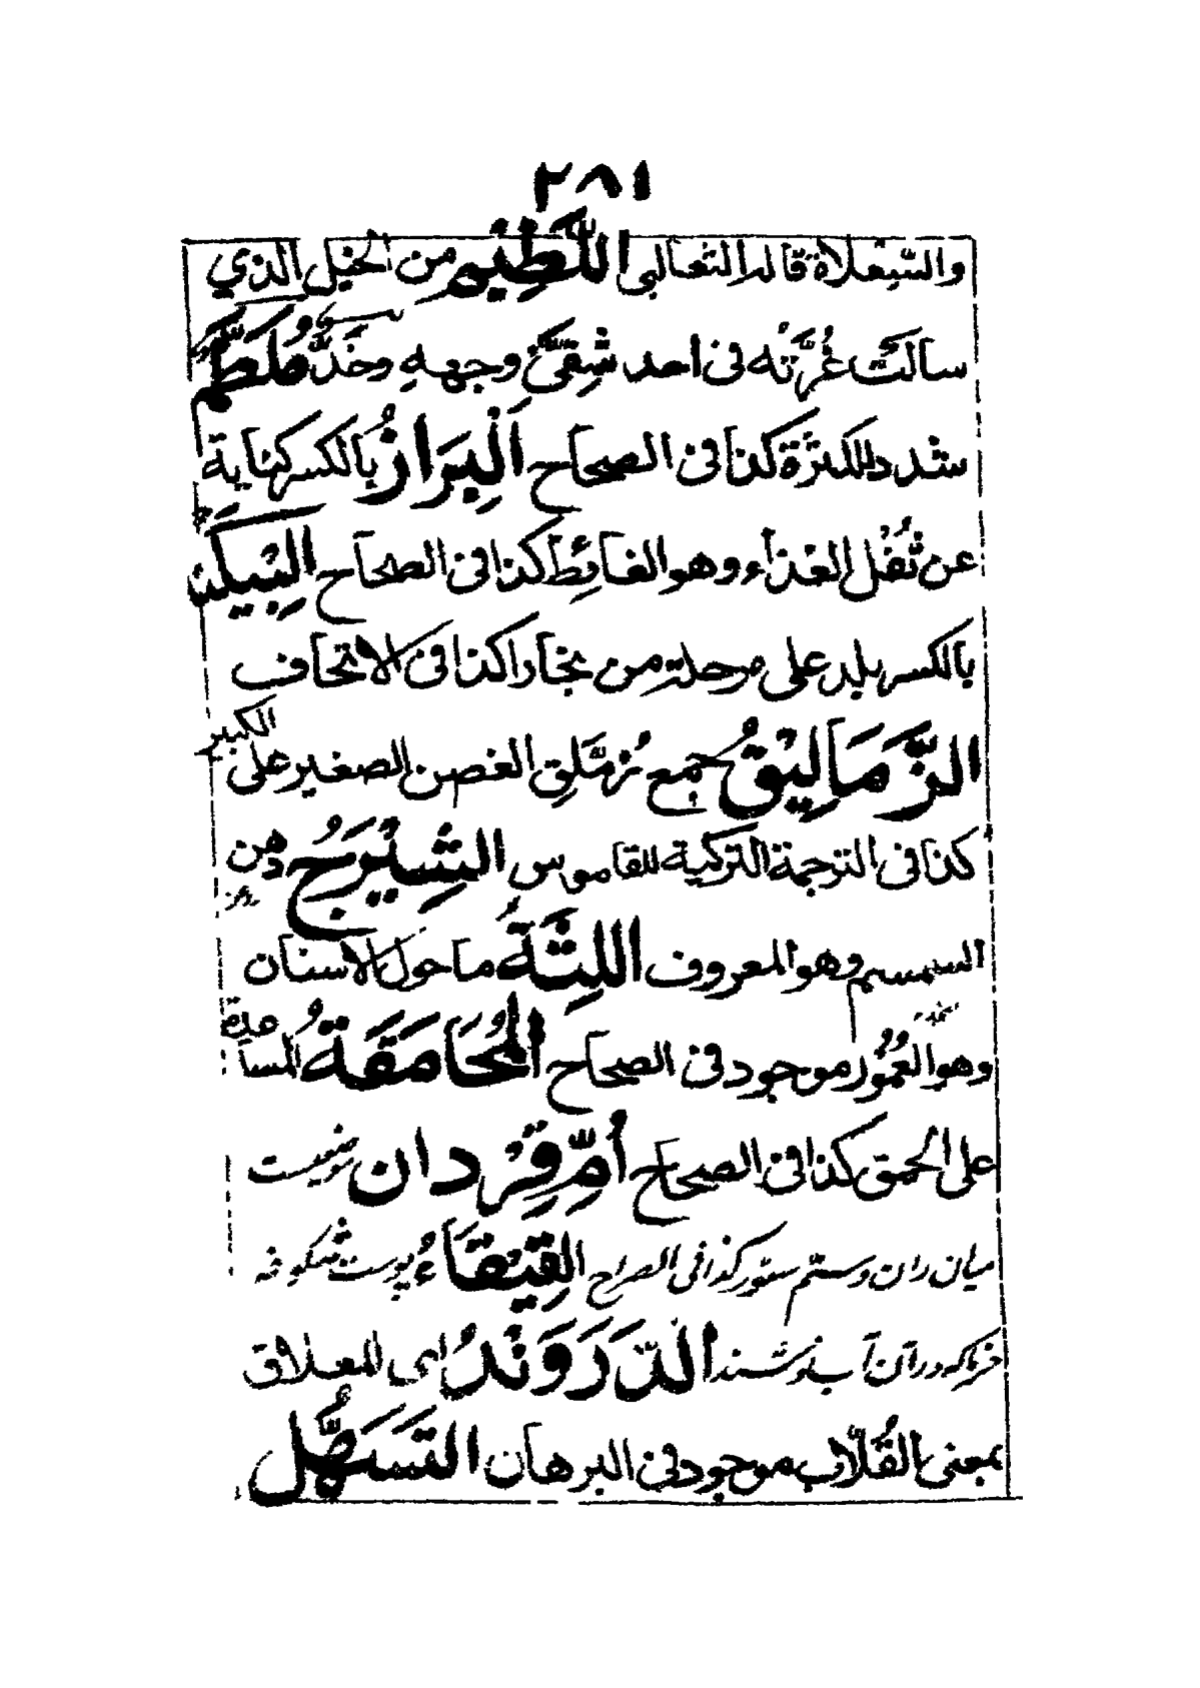 ٢٨١
والسعلاة قاله الثعالبى اللَّطِيْم من الخيل الذي
سالت غُرَّتُه فى احد شِقَّىْ وجههِ وخَدٌّ مُلَطَّم
شدد للكثرة كذا فى الصحاح اَلْبِرَازُ بالكسر كناية
عن ثُفْل الغذاء وهو الغائط كذا فى الصحاح البِيْكَنْد
بالكسر بلد على مرحلة من بخارا كذا فى الاتحاف
الزَّمَالِيْقُ جمع زُمَّلِق الغصن الصغير على الكبير
كذا فى الترجمة التركية للقاموس الشِيْرَجُ دهن
السمسم وهو المعروف اللِثَةُ ما حول الاسنان
وهو العُمُور موجود فى الصحاح المُحَامَقَةُ المساعدة
على الحمق كذا فى الصحاح اُمُّ قِرْدان موضعيست
ميان ران وستم ستور كذا فى الصراح القِيْقَاءُ پوست شكوفه
خرما كه در آن آب نوشند الدَّرَوَنْدُ اى المعلاق
بمعنى القُلَّاب موجود فى البرهان التَسَهُّل